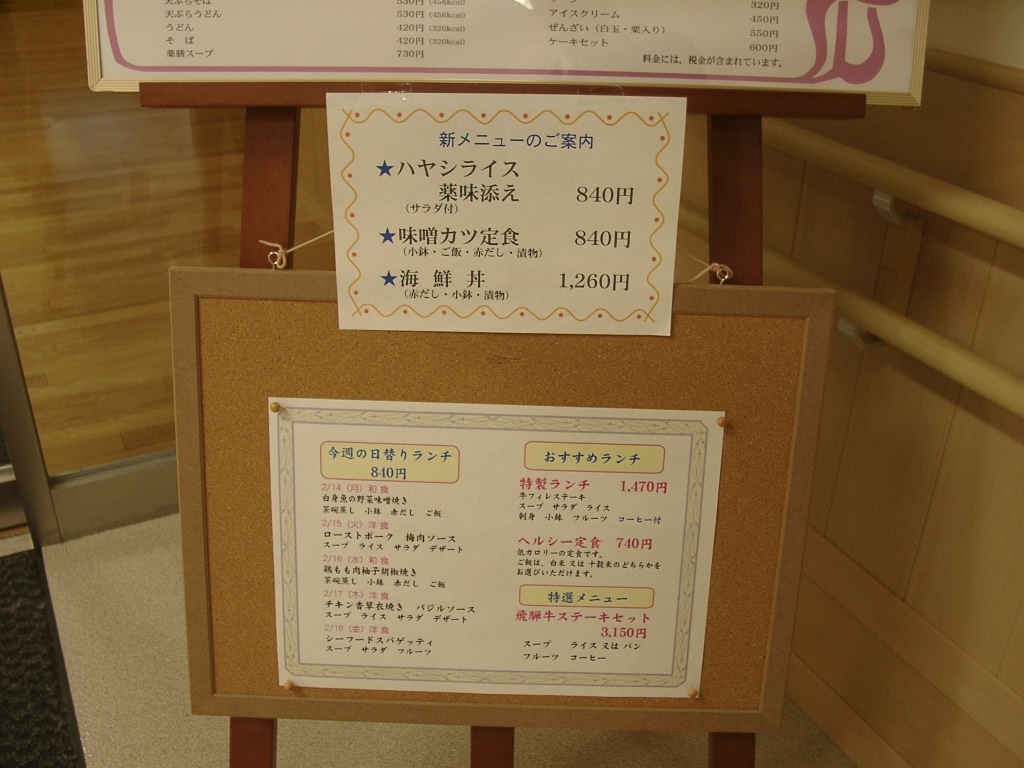 天ぷらそば 530円 (458kcal)
天ぷらうどん 530円 (456kcal)
うどん 420円 (320kcal)
そば 420円 (320kcal)
薬膳スープ 730円
320円
アイスクリーム 450円
ぜんざい (白玉・栗入り) 550円
ケーキセット 600円
料金には、税金が含まれています。
新メニューのご案内
★ハヤシライス
薬味添え 840円
(サラダ付)
★味噌カツ定食 840円
(小鉢・ご飯・赤だし・漬物)
★海鮮丼 1,260円
(赤だし・小鉢・漬物)
今週の日替りランチ
840円
2/14 (月) 和食
白身魚の野菜味噌焼き
茶碗蒸し 小鉢 赤だし ご飯
2/15 (火) 洋食
ローストポーク 梅肉ソース
スープ ライス サラダ デザート
2/16 (水) 和食
鶏もも肉柚子胡椒焼き
茶碗蒸し 小鉢 赤だし ご飯
2/17 (木) 洋食
チキン香草衣焼き バジルソース
スープ ライス サラダ デザート
2/18 (金) 洋食
シーフードスパゲッティ
スープ サラダ フルーツ
おすすめランチ
特製ランチ 1,470円
牛フィレステーキ
スープ サラダ ライス
刺身 小鉢 フルーツ コーヒー付
ヘルシー定食 740円
低カロリーの定食です。
ご飯は、白米又は十穀米のどちらかを
お選びいただけます。
特選メニュー
飛騨牛ステーキセット
3,150円
スープ ライス又はパン
フルーツ コーヒー